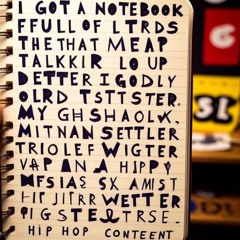 I GOT A NOTEBOOK
FFULL OF LTRDS
THE THAT MEAP
TALKKIR LO UP
DETTER I GODLY
OLRD TSTTSTER.
MY GHSHAOLK,
MITNAN SETTLER
TRIOLEF WIGTER
VAP AN A HIPPY
MFSIAS SX AMIST
WETTER
HIP HOP CONTEENT